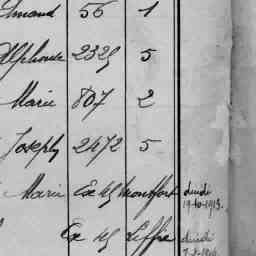 Armand 56 1
Alphonse 2325 5
Marie 807 2
Joseph 2472 5
Marie Ex Montfort décédé
19-10-1913.
Ex Leffie décédé